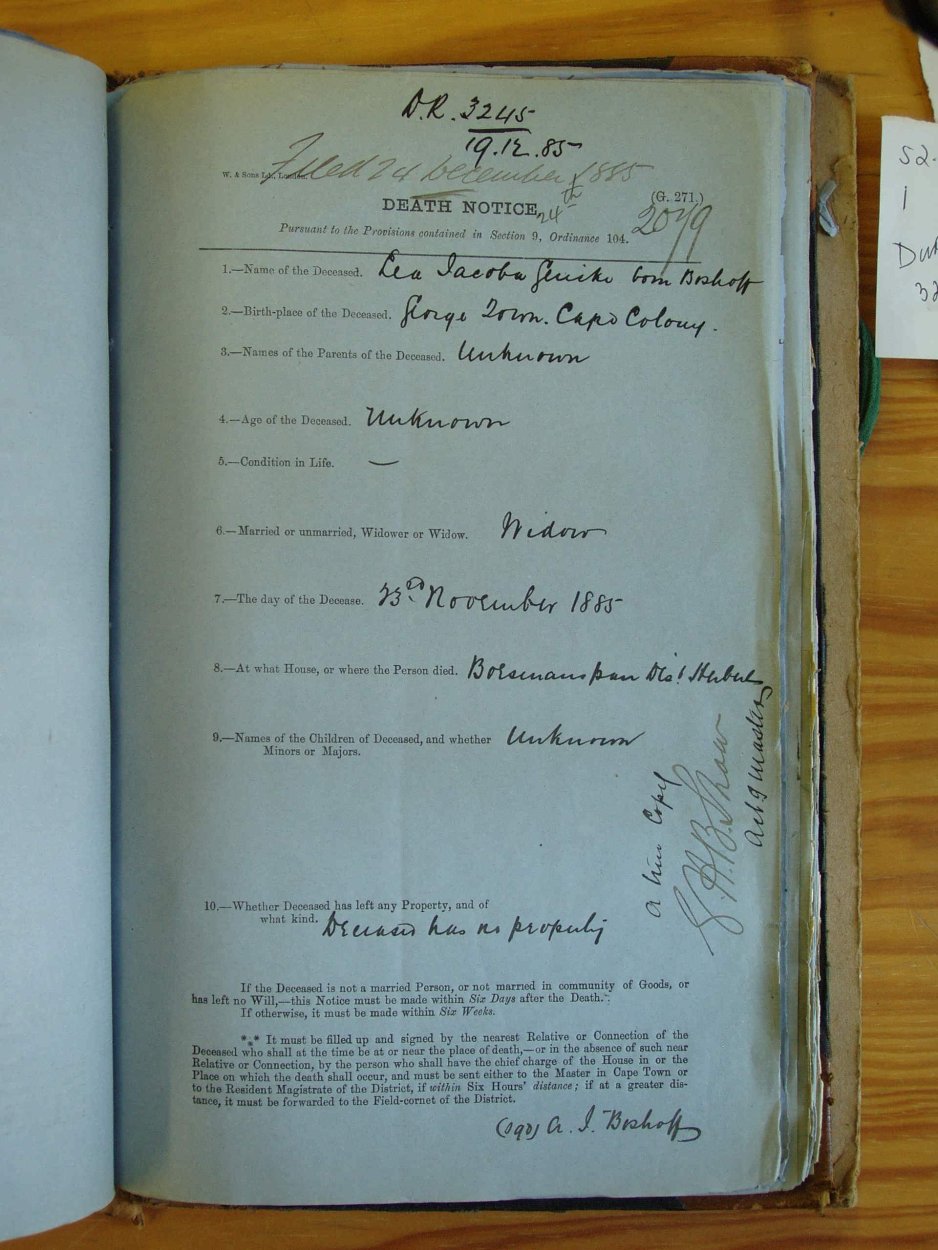 D.R. 3245
19.12.85
Filed 24 December 1885
W. & Sons Ld., London.
(G. 271.)
DEATH NOTICE,
24th
2079
Pursuant to the Provisions contained in Section 9, Ordinance 104.
1.—Name of the Deceased. Lea Jacoba Genike born Boshoff
2.—Birth-place of the Deceased. George Town. Cape Colony.
3.—Names of the Parents of the Deceased. Unknown
4.—Age of the Deceased. Unknown
5.—Condition in Life. —
6.—Married or unmarried, Widower or Widow. Widow
7.—The day of the Decease. 23rd November 1885
8.—At what House, or where the Person died. Boesmanspan Dist Herbert
9.—Names of the Children of Deceased, and whether Unknown
Minors or Majors.
A true Copy
B. Shaw
Actg Master
10.—Whether Deceased has left any Property, and of
what kind. Deceased has no property
If the Deceased is not a married Person, or not married in community of Goods, or
has left no Will,—this Notice must be made within Six Days after the Death.
If otherwise, it must be made within Six Weeks.
*** It must be filled up and signed by the nearest Relative or Connection of the
Deceased who shall at the time be at or near the place of death,—or in the absence of such near
Relative or Connection, by the person who shall have the chief charge of the House in or the
Place on which the death shall occur, and must be sent either to the Master in Cape Town or
to the Resident Magistrate of the District, if within Six Hours' distance; if at a greater dis-
tance, it must be forwarded to the Field-cornet of the District.
(sgd) A. J. Boshoff
S2.
1
32